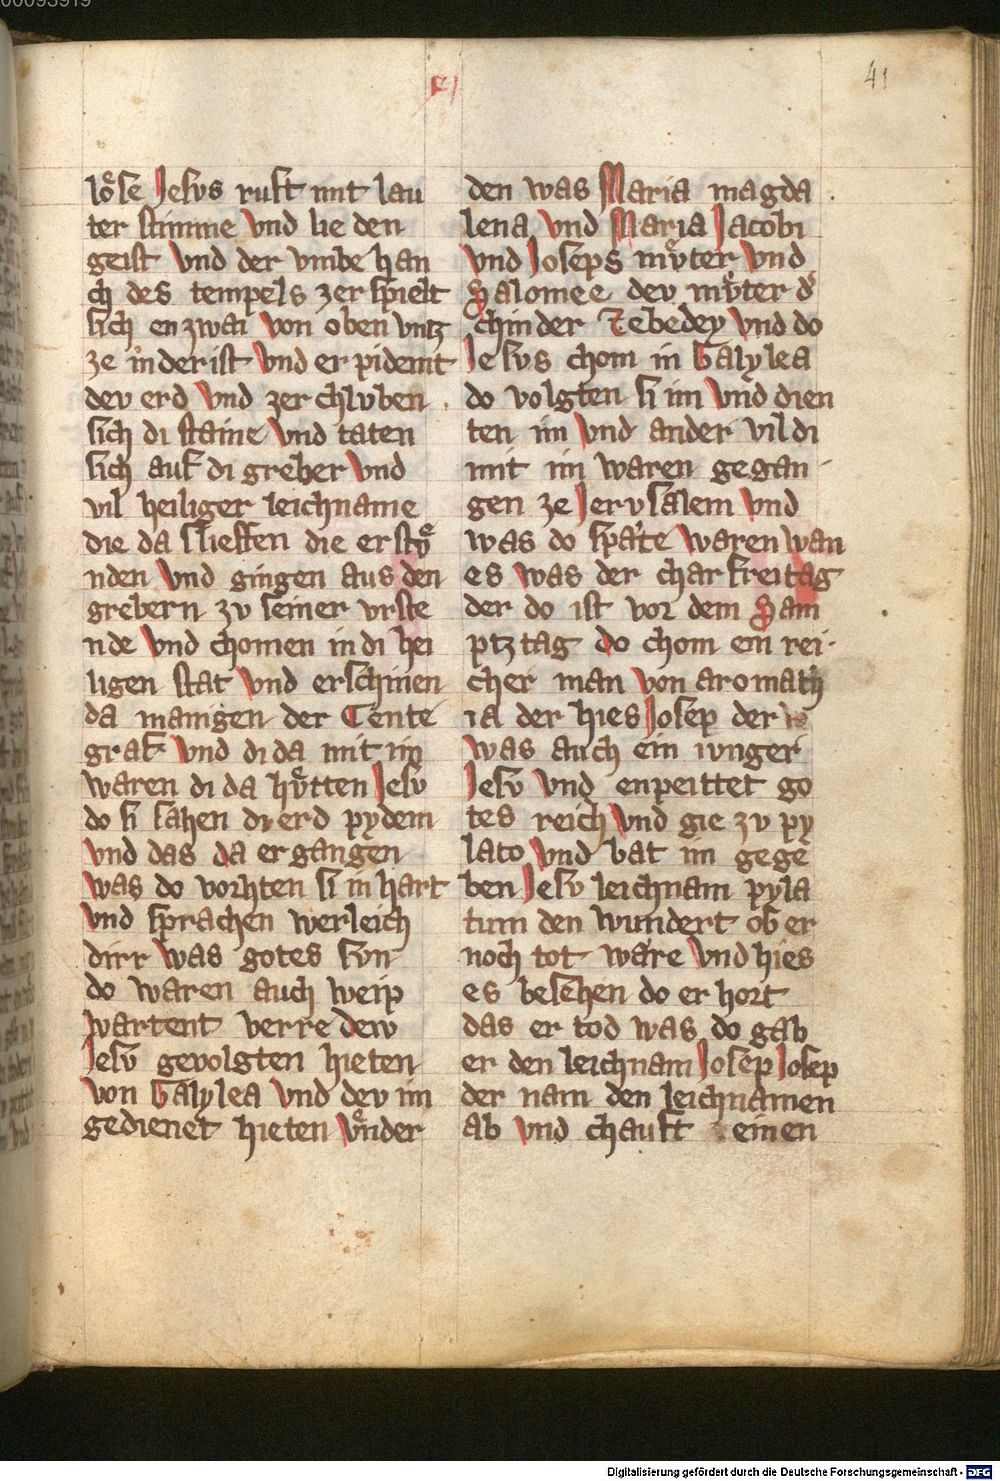 41
loͤse Jesvs ruft mit lau
ter stimme vnd lie den
geist vnd der vmbe han
ch des tempels zer spielt
sich enzwai von oben vntz
ze inderist vnd er pidemt
dev erd vnd zer chlvben
sich di staine vnd taten
sich auf di greber vnd
vil heiliger leichname
die da slieffen die erstvͤ
nden vnd gingen aus den
grebern zv seiner vrste
nde vnd chomen in di hei
ligen stat vnd erschinen
da manigen der Cente
graf vnd di da mit im
waren di da hvͤtten Jesv
do si sahen di erd pydem
vnd das da ergangen
was do vorhten si in hart
vnd sprachen werleich
dirr was gotes svn
do waren auch weip
wartent verre dew
Jesv gevolgten hieten
von Galylea vnd dev im
gedienet hieten vͤnder
den was Maria magda
lena vnd Maria Jacobi
vnd Joseps mvͤter vnd
Salomee dev mvͤter d
chinder Zebedey vnd do
Jesvs chom in Galylea
do volgten si im vnd dien
ten im vnd ander vil di
mit im waren gegan
gen ze Jervsalem vnd
was do spate waren wan
es was der charfreitag
der do ist vor dem Sam
ptztag do chom ein rei
cher man von aromath
ia der hies Josep der
was auch ein iunger
Jesv vnd enpeittet go
tes reich vnd gie zv py
lato vnd bat im gege
ben Jesv leichnam pyla
tum den wundert ob er
noch tot ware vnd hies
es besehen do er hort
das er tod was do gab
er den leichnam Josep Josep
der nam den leichnamen
ab vnd chauft einen
Digitalisierung gefördert durch die Deutsche Forschungsgemeinschaft - DFG